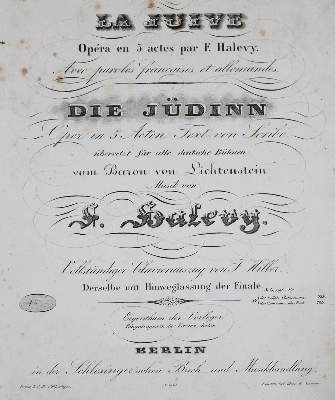 LA JUIVE
Opéra en 5 actes par F. Halevy.
Avec paroles françaises et allemandes.
DIE JÜDINN
Oper in 5 Acten Text von Scribe
übersetzt für alle deutsche Bühnen
vom Baron von Lichtenstein
Musik von
F. Halevy.
Vollständiger Clavierauszug von F. Hiller.
Derselbe mit Hinweglassung der Finale.
Eigenthum der Verleger.
BERLIN
in der Schlesinger'schen Buch und Musikhandlung.